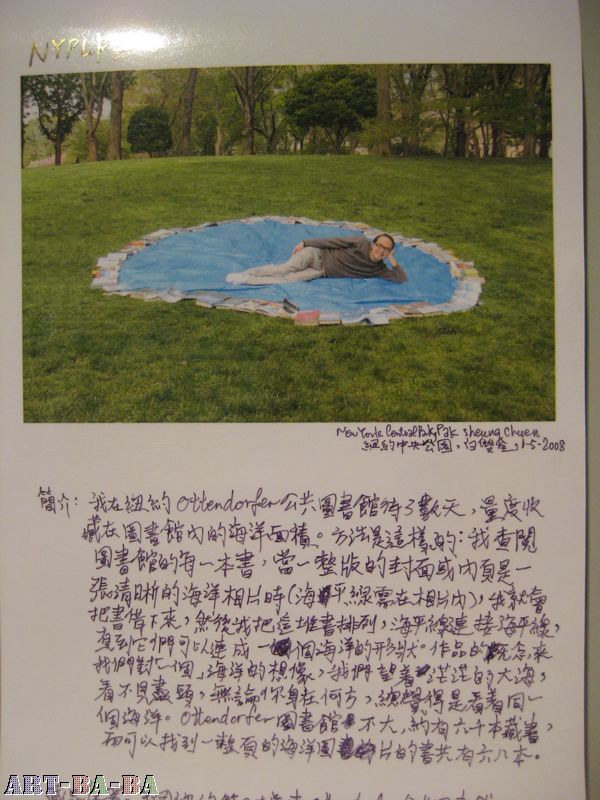 NYPLP
New York Central Park, Pak Sheung Chuen
紐約中央公園,白雙全,1-5-2008
簡介:我在紐約Ottendorfer公共圖書館待了數天,量度收
藏在圖書館內的海洋面積。方法是這樣的:我查閱
圖書館的每一本書,當一整版的封面或內頁是一
張清晰的海洋相片時(海平線需在相片內),我就會
把書借下來,然後我把這堆書排列,海平線連接海平線,
直到它們可以連成一個海洋的形狀。作品的概念來
我們對一個海洋的想像,我們望着茫茫的大海,
看不見盡頭,無論你身在何方,總覺得是看着同一
個海洋。Ottendorfer圖書館不大,約有六千本藏書,
而可以找到一整頁的海洋圖片的書共有六八本。
ART-BA-BA